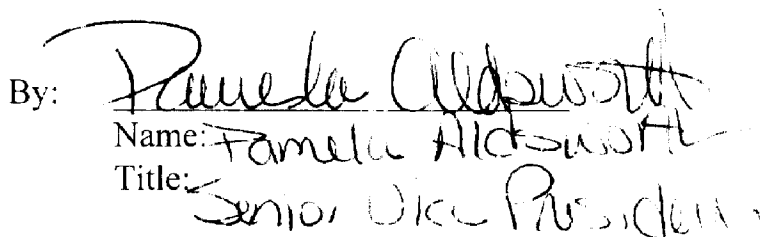 By: Pamela Aldsworth
Name: Pamela Aldsworth
Title:
Senior Vice President